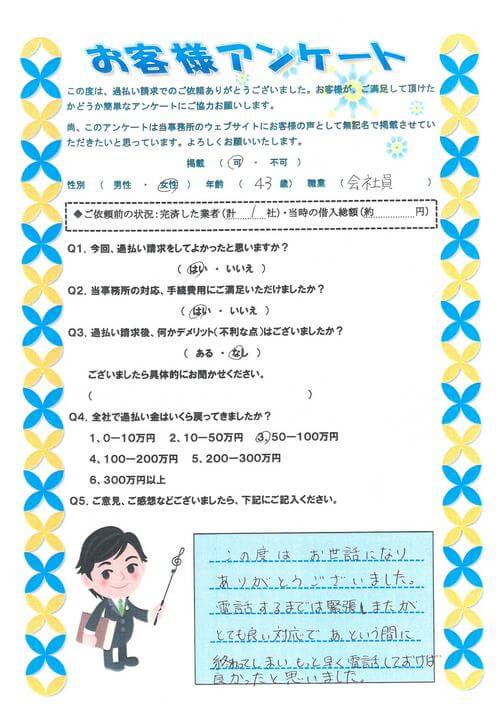 お客様アンケート
この度は、過払い請求でのご依頼ありがとうございました。お客様が、ご満足して頂けた
かどうか簡単なアンケートにご協力お願いします。
尚、このアンケートは当事務所のウェブサイトにお客様の声として無記名で掲載させてい
ただきたいと思っています。よろしくお願いいたします。
掲載 （ 可 ・ 不可 ）
性別 （ 男性 ・ 女性 ） 年齢 （ 43 歳） 職業 （ 会社員 ）
◆ご依頼前の状況：完済した業者（計 1 社）・当時の借入総額（約 円）
Q1. 今回、過払い請求をしてよかったと思いますか？
（ はい ・ いいえ ）
Q2. 当事務所の対応、手続費用にご満足いただけましたか？
（ はい ・ いいえ ）
Q3. 過払い請求後、何かデメリット（不利な点）はございましたか？
（ ある ・ なし ）
ございましたら具体的にお聞かせください。
（ ）
Q4. 全社で過払い金はいくら戻ってきましたか？
1、0－10万円 2、10－50万円 3、50－100万円
4、100－200万円 5、200－300万円
6、300万円以上
Q5. ご意見、ご感想などございましたら、下記にご記入ください。
この度は お世話になり
ありがとうございました。
電話するまでは緊張しまたが
とても良い対応で あっという間に
終わってしまい もっと早く電話しておけば
良かったと思いました。